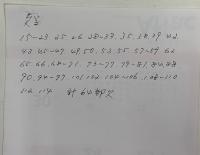 15-23. 25. 26. 28-33. 35. 38. 39. 42.
43. 45-47. 49. 50. 53. 55. 57-59. 62
65. 66. 68-71. 73-77. 79-81.
90. 94-97. 101. 102. 104-106. 108-110
112. 114